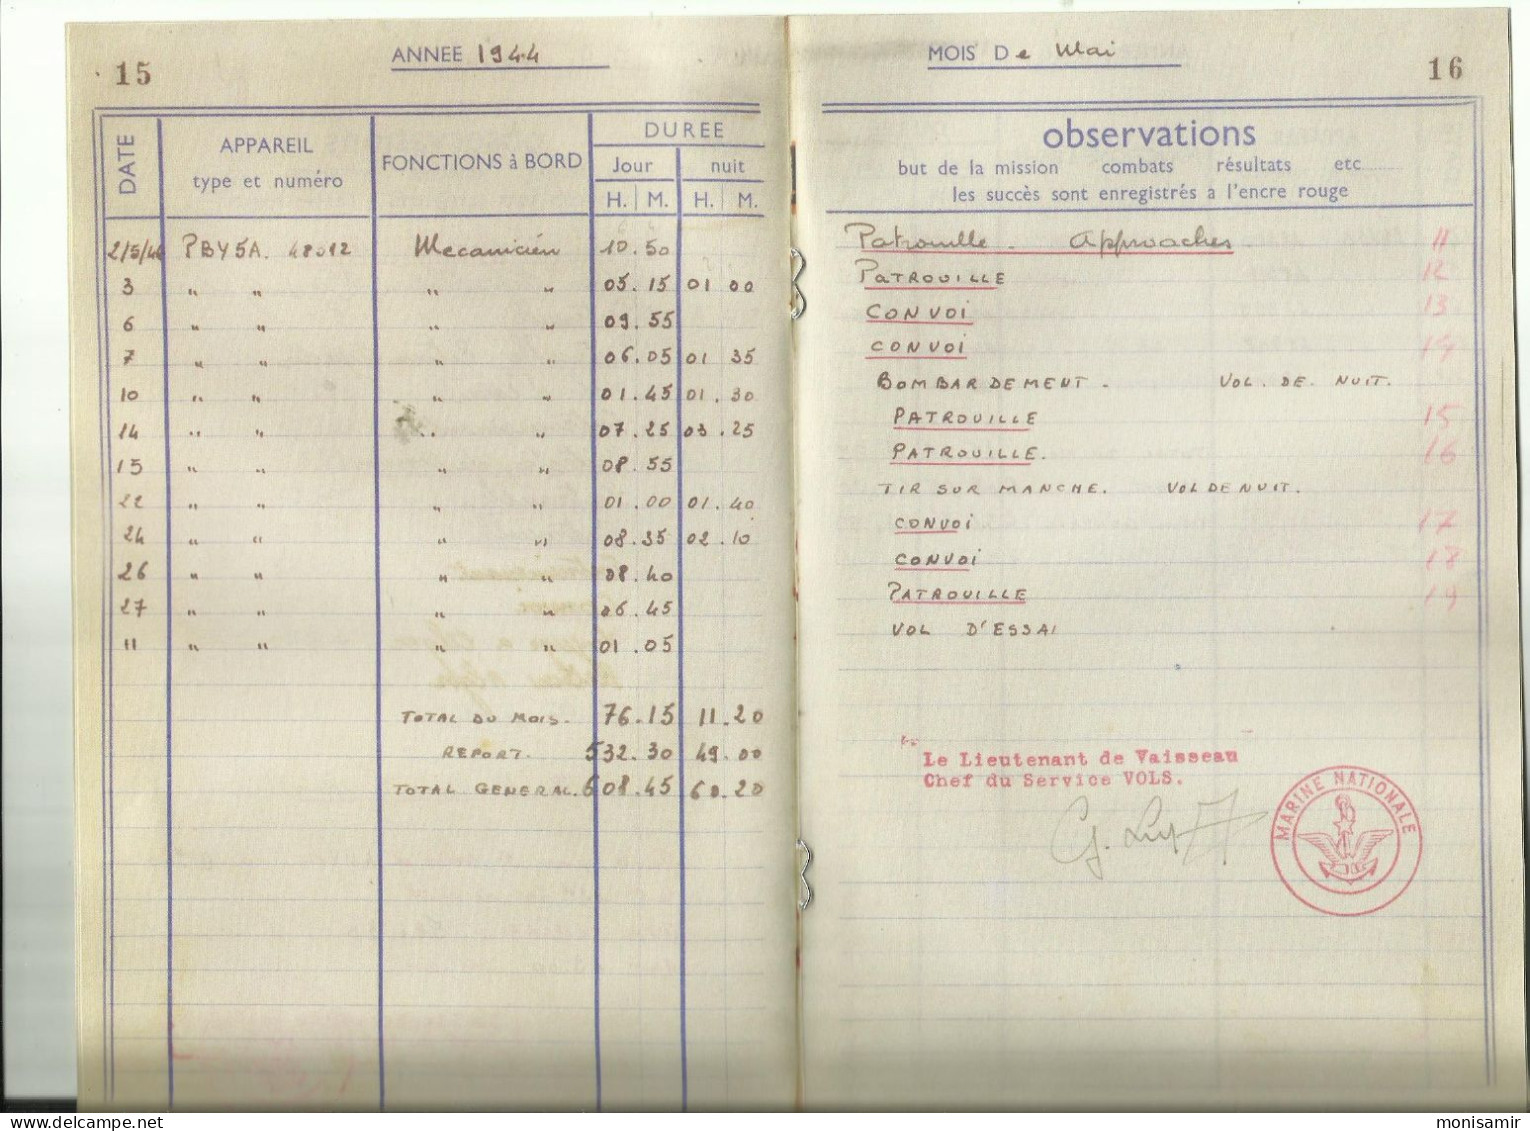 15 ANNEE 1944
DATE APPAREIL type et numéro FONCTIONS à BORD DUREE Jour nuit H. M. H. M.
2/5/44 PBY5A. 48012 Mecanicien 10.50
3 " " " " 05.15 01 00
6 " " " " 09.55
7 " " " " 06.05 01 35
10 " " " " 01.45 01.30
14 " " " " 07.25 03.25
15 " " " " 08.55
22 " " " " 01.00 01.40
24 " " " " 08.35 02.10
26 " " " " 08.40
27 " " " " 06.45
11 " " " " 01.05
TOTAL DU MOIS. 76.15 11.20
REPORT. 532.30 49.00
TOTAL GENERAL. 608.45 60.20
MOIS De Mai 16
observations
but de la mission combats résultats etc........
les succès sont enregistrés a l'encre rouge
Patrouille. Approaches 11
PATROUILLE 12
CONVOI 13
CONVOI 14
BOMBARDEMENT. VOL. DE. NUIT.
PATROUILLE 15
PATROUILLE. 16
TIR SUR MANCHE. VOL DE NUIT.
CONVOI 17
CONVOI 18
PATROUILLE 19
VOL D'ESSAI
Le Lieutenant de Vaisseau
Chef du Service VOLS.
MARINE NATIONALE
www.delcampe.net
monisamir